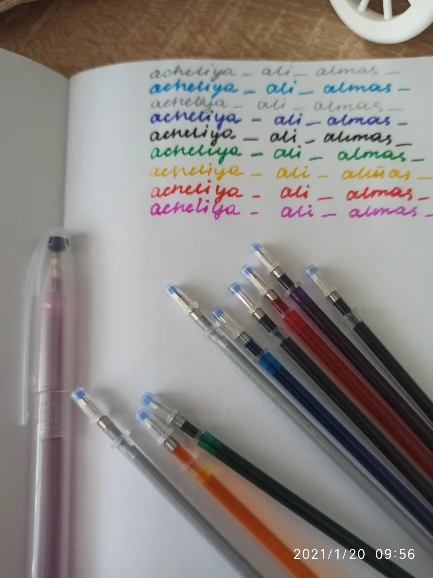 acheliya - ali - almas -
acheliya - ali - almas -
acheliya - ali - almas -
acheliya - ali - almas -
acheliya - ali - almas -
acheliya - ali - almas -
acheliya - ali - almas -
acheliya - ali - almas -
acheliya - ali - almas -
2021/1/20 09:56